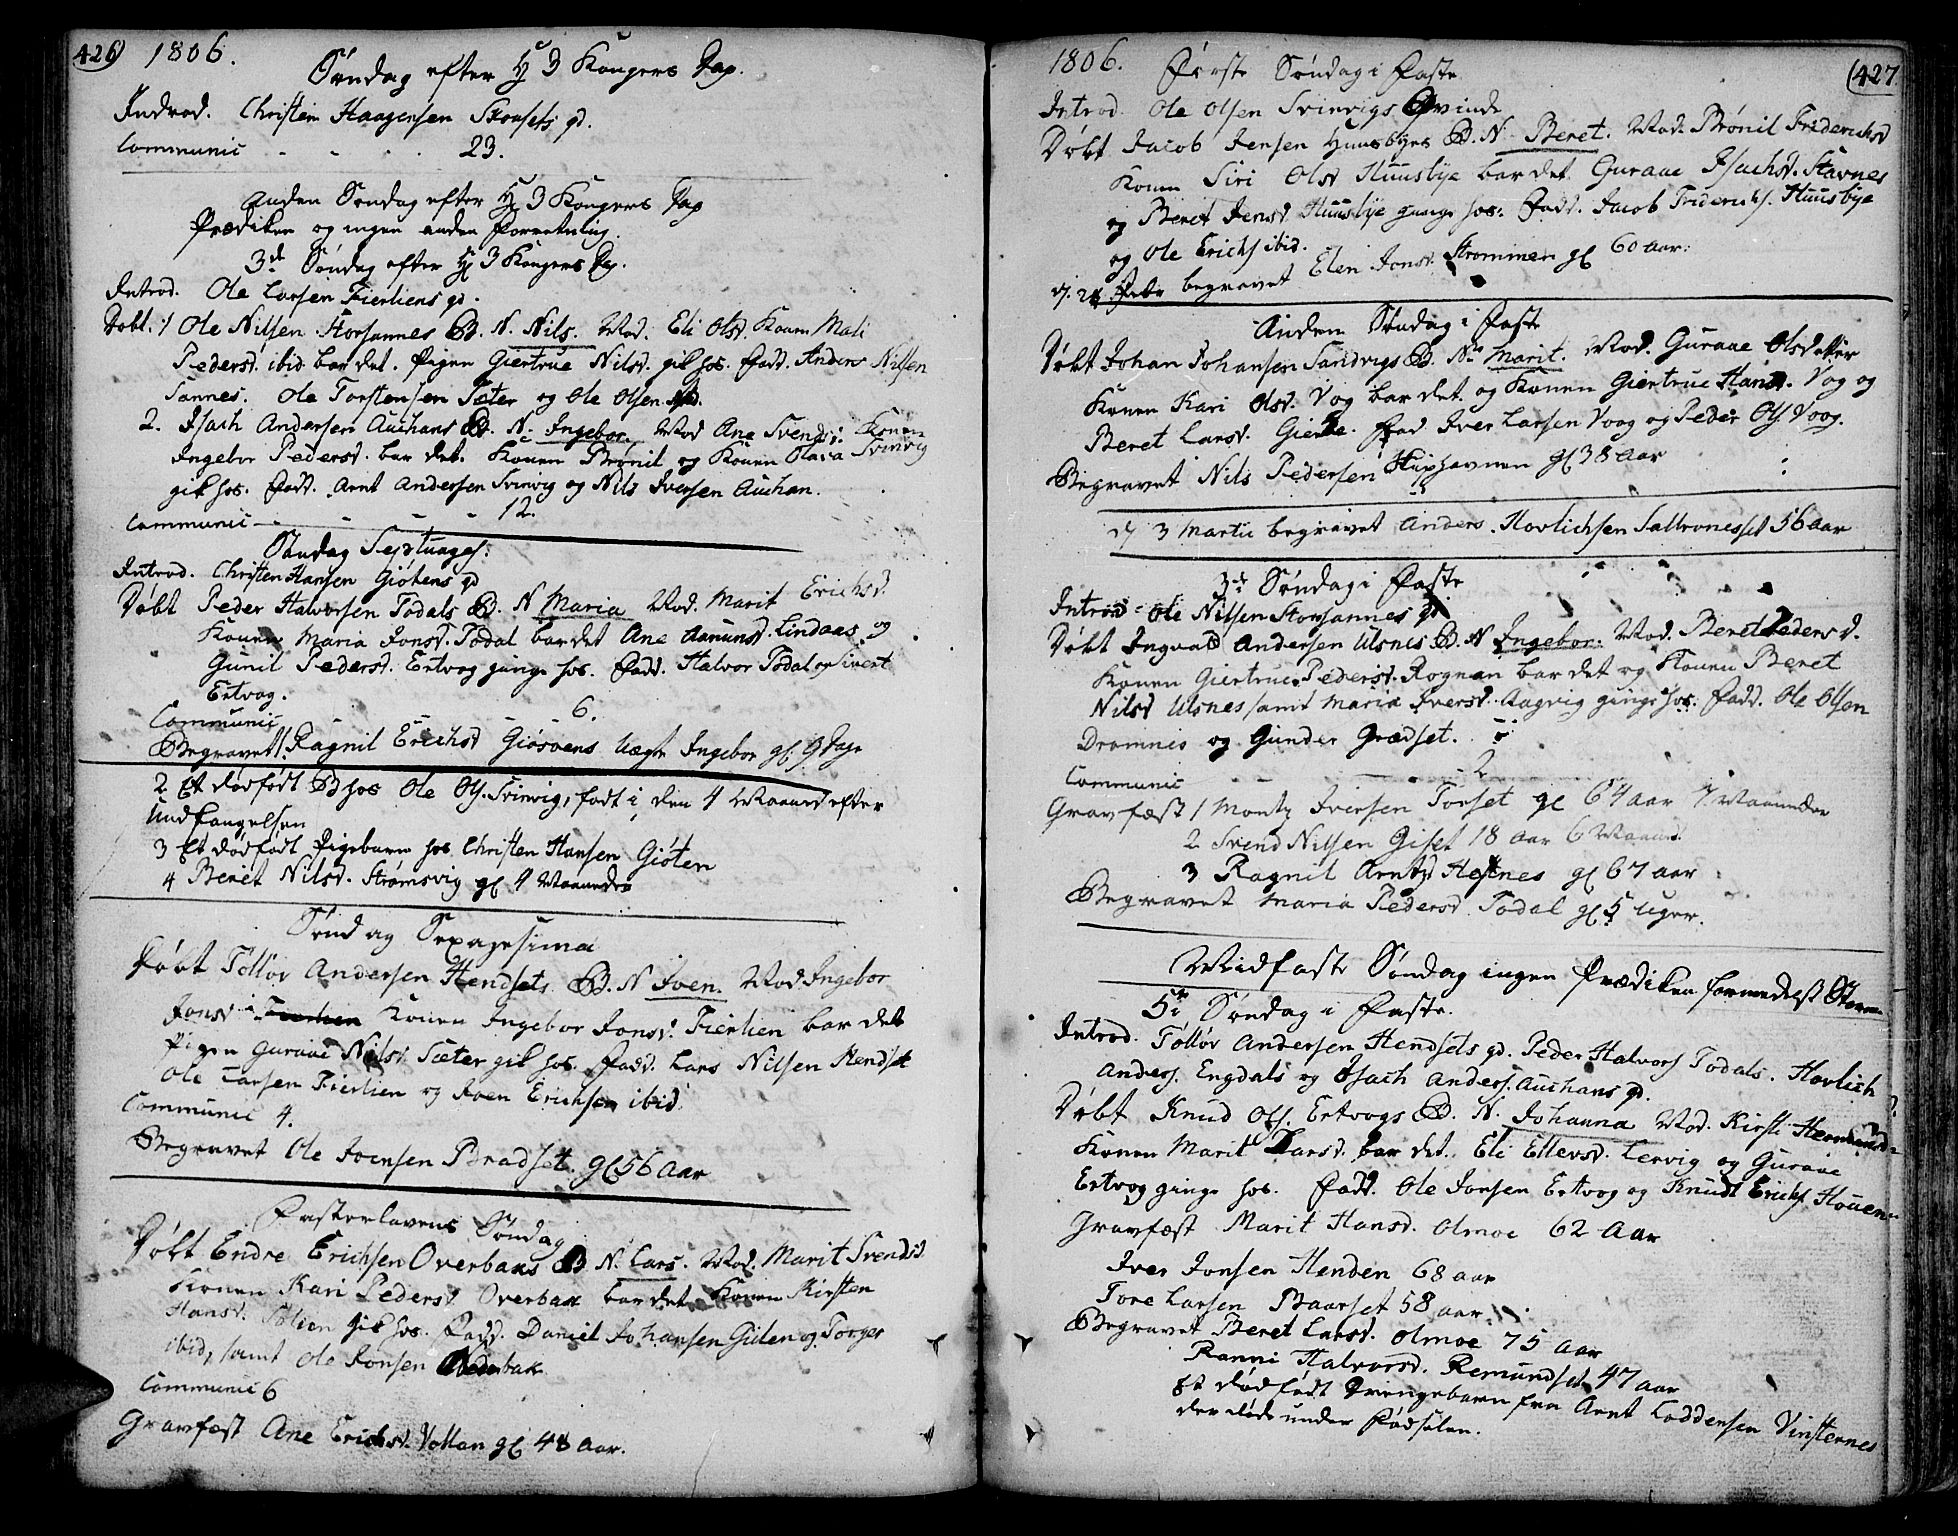 426) 1806.
Søndag efter H 3 Kongers Dag.
Introd. Christen Haagensen Skousets qd.
Communic - - - 23.
Anden Søndag efter H 3 Kongers Dag
Prædiken og ingen anden Forretning.
3de Søndag efter H 3 Kongers Dag.
Introd. Ole Larsen Fierliens qd.
Døbt. 1 Ole Nilsen Storsannes B. N. Nils. Mod. Eli Olsd. Konen Mali
Pedersd. ibid bar det. Pigen Giertrue Nilsd. gik hos. Fadd. Anders Nilsen
Sannes. Ole Torstensen Sæter og Ole Olsen ibid.
2. Isach Andersen Auchans B. N. Ingebor. Mod Ane Svendsd. Konen
Ingebor Pedersd. bar det. Konen Brønil og Konen Olava Svinvig
gik hos. Fadd. Arnt Andersen Svinvig og Nils Iversen Auchan.
Communic - - - 12.
Søndag Septuages:
Introd. Christen Hansen Giøtens qd
Døbt Peder Halvorsen Todals B. N Maria Mod. Marit Erichsd.
Konen Maria Jonsd. Todal bar det Ane Aamunsd. Lindaas og
Gunil Pedersd. Ertvog ginge hos. Fadd. Halvor Todal og Sivert
Ertvog.
Communic 6.
Begravet 1. Ragnil Erichsd Giøsvens Uægte Ingebor gl 9 Dage
2 Et dødfødt B hos Ole Ols. Svinvig, født i den 4 Maaned efter
Undfangelsen
3 Et dødfødt Pigebarn hos Christen Hansen Giøten
4 Beret Nilsd. Strømsvig gl 4 Maaneder
Søndag Sexagesima
Døbt Tolløv Andersen Hendsets B. N Iven. Mod Ingebor
Jonsd Konen Ingebor Jonsd. Fierlien bar det
Pigen Guraae Nilsd. Sæter gik hos. Fadd. Lars Nilsen Hendset
Ole Larsen Fierlien og Iven Erichsen ibid.
Communic 4.
Begravet Ole Joensen Bradset gl 56 Aar
Fastelavens Søndag
Døbt Endre Erichsen Overbaks B N. Lars. Mod. Marit Svendsd.
Konen Kari Pedersd. Overbak bar det Konen Kirsten
Hansd. Solien gik hos. Fadd. Daniel Johansen Gulen og Torger
ibid, samt Ole Jonsen Overbak
Communic 6
Gravfæst Ane Erichsd. Vollan gl 48 Aar.
1806. Første Søndag i Faste (427
Introd. Ole Olsen Svinvigs Qvinde
Døbt Jacob Jensen Huusbyes B. N. Beret. Mod. Brønil Friderichsd
Konen Siri Olsd Huusbye bar det Guraae Isachsd. Stavnes
og Beret Jensd. Huusbye ginge hos. Fadd. Jacob Friderichs. Huusbye
og Ole Erichs ibid.
d. 24 Febr begravet Elen Jonsd. Strømmen gl 60 Aar.
Anden Søndag i Faste
Døbt Johan Johansen Sandvigs B. N. Marit. Mod. Guraae Olsdatter
Konen Kari Olsd. Vog bar det og Konen Giertrue Hansd. Vog og
Beret Larsd. Fad Iver Larsen Voog og Peder Ols. Voog.
Begravet Nils Pedersen Kuphavnen gl 38 Aar
d 3 Martii begravet Anders Hovlichsen Saltronesset 56 Aar
3de Søndag i Faste
Introd Ole Nilsen Storsannes qd
Døbt Ingvald Andersen Ulsnes B. N Ingebor. Mod. Beret Pedersd.
Konen Giertrue Pedersd. Rognan bar det og Konen Beret
Nilsd Ulsnes samt Maria Iversd. Aagvig ginge hos. Fadd. Ole Olsen
Dromnes og Gunder Grødset.
Communic 2
Gravfæst 1 Montz Iversen Torset gl 64 Aar 7 Maaneder
2 Svend Nilsen Giset 18 Aar 6 Maaned.
3 Ragnil Arntsd Hestnes gl 67 Aar
Begravet Maria Pedersd. Todal gl 5 Uger.
Midfaste Søndag ingen Prædiken formedelst Storm
5te Søndag i Faste.
Introd. Tolløv Andersen Hendsets qd. Peder Halvors Todals. Hovlich
Anders. Engdals og Isach Anders. Auchans qd.
Døbt Knud Ols. Ertvogs B. N. Johanna Mod. Kirsti
Konen Marit Larsd. bar det. Eli Ellevsd. Lervig og Guraae
Ertvog ginge hos. Fadd. Ole Jonsen Ertvog og Knudt Erichs. Houen
Gravfæst Marit Hansd. Olmoe 62 Aar
Iver Jonsen Henden 68 Aar
Tore Larsen Baarset 58 Aar.
Begravet Beret Larsd. Olmoe 75 Aar
Ranni Halvorsd. Remundset 47 Aar
Et dødfødt Drengebarn fra Arnt Loddensen Vinsternes
der døde under Fødselen.